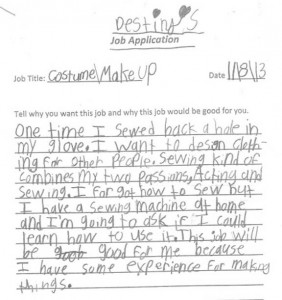 Destiny's
Job Application
Job Title: Costume\Make up Date 1/18/13
Tell why you want this job and why this job would be good for you.
One time I sewed back a hole in
my glove. I want to design cloth-
ing for other people. Sewing kind of
combines my two passions, Acting and
Sewing. I for got how to sew but
I have a sewing machine at home
and I'm going to ask if I could
learn how to use it. This job will
be good for me because
I have some experience for making
things.